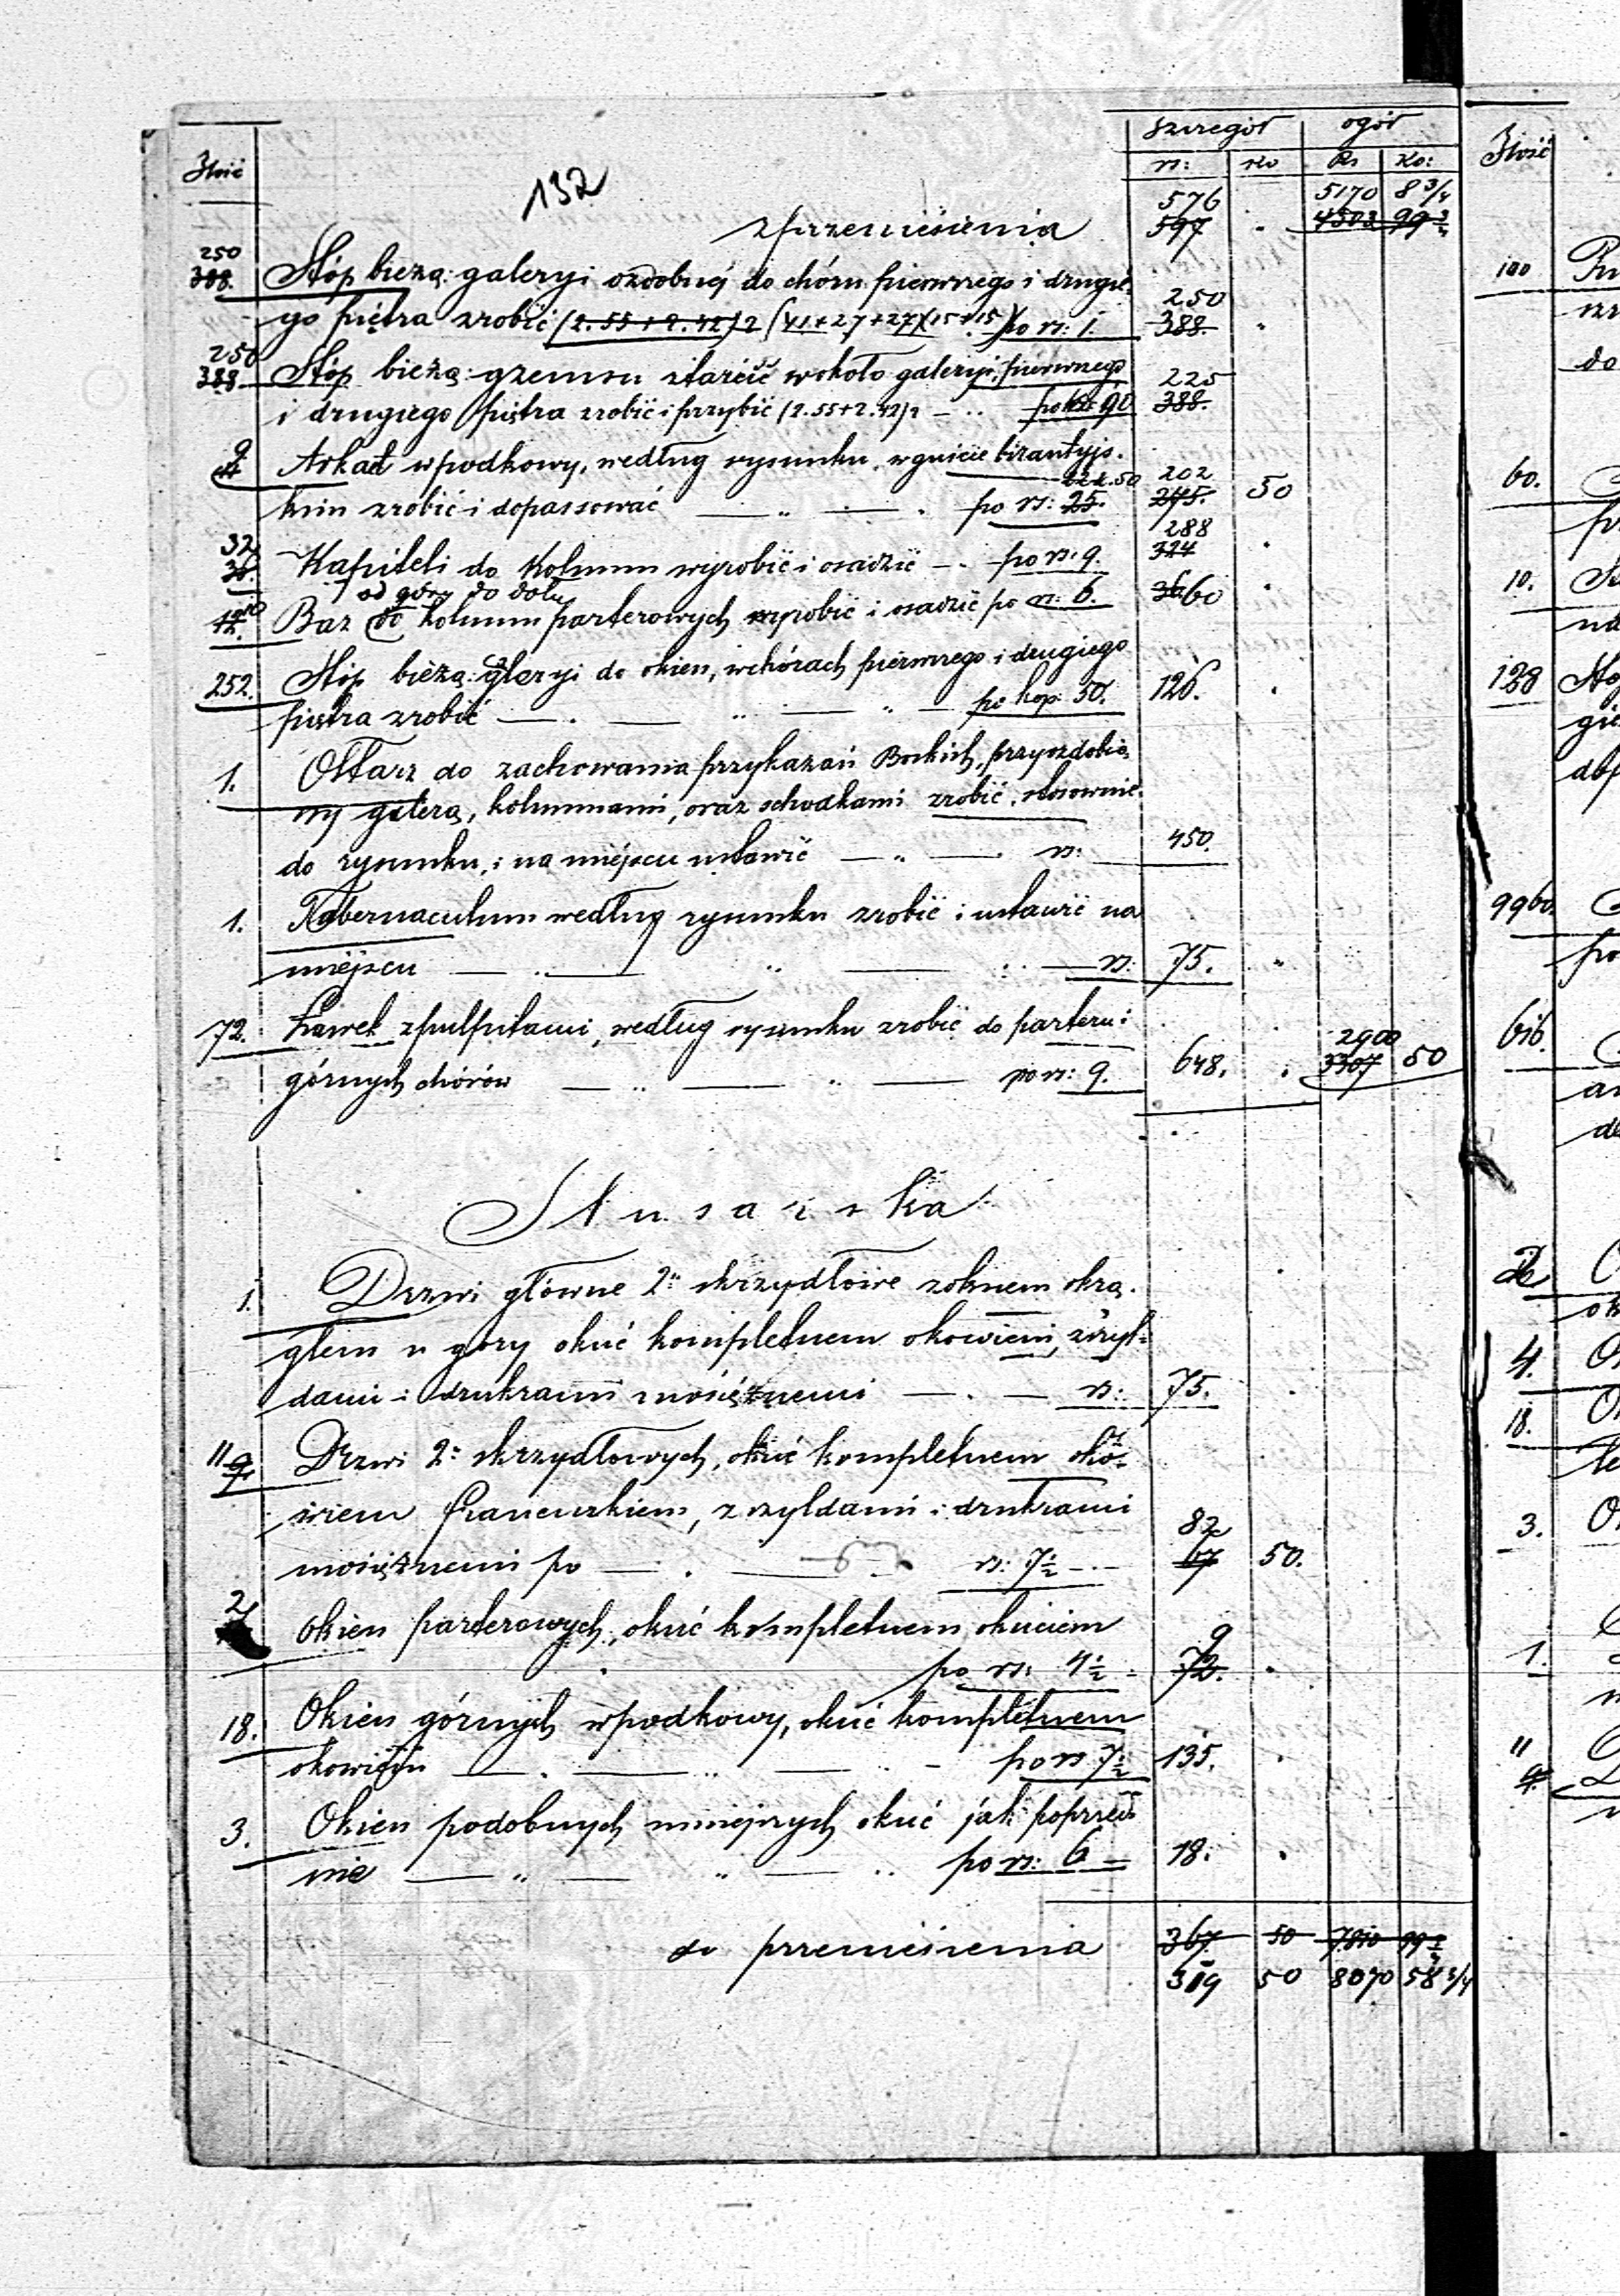 Ilość
szczegół ogół
rs: ko Rs Ko:
132
576 5170 8 3/4
z przeniesienia 597 . 4503 99 3/4
250
388. Stóp bieżą: galeryi ozdobnéj do chóru pierwszego i drugie
250
go piętra zrobić (2.55+2.42)2 (41+27+27)(15+15) po rs: 1. 388.
250
388 Stóp bieżą: gzemsu wokoło galeryi, pierwszego 225
i drugiego piętra zrobić i przybić (2.55+2.42)2 po ko: 90 388.
9 Arkad w podkowy, według rysunku, w guście bizantyjs.
22.50 202
kim zrobić i dopassować po rs: 25. 275. 50
32 288
36. Kapiteli do Kolumn wyrobić i osadzić po rs. 9. 324
od góry do dołu
12. 10 Baz do kolumn parterowych wyrobić i osadzić po rs: 6. 36 60
252. Stóp bieżą: galeryi do okien, w chórach pierwszego i drugiego
piętra zrobić po kop: 50. 126.
1. Ołtarz do zachowania przykazań Boskich, przyozdobio
ny galerą, kolumnami, oraz schodkami zrobić, stosownie
do rysunku, i na miéjscu ustawić rs: 450.
1. Tabernaculum według rysunku zrobić i ustawić na
miéjscu rs: 75.
72. Ławek z pulpitami, według rysunku zrobić do parteru i
2900
górnych chórów po rs: 9. 648. 3307 50
Slusarska
1. Drzwi główne 2: skrzydłowe z oknem okrą.
głem u góry okuć kompletnem okowiem, z szyl-
dami i drukrami mosiężnemi rs: 75.
11 9 Drzwi 2: skrzydłowych, okuć kompletnem oko-
wiem francuskiem, z szyldami i drukrami
82
mosiężnemi po rs: 7 1/2 67 50.
2 okien parterowych, okuć kompletnem okuciem
9
po rs: 4 1/2 72.
18. Okien górnych w podkowy, okuć kompletnem
okowiem po rs 7 1/2 135.
3. Okien podobnych mniejszych okuć jak poprzed
nie po rs: 6 18.
do przeniesienia 367 50 7810 99 3/4
319 50 8070 58 3/4
Ilość
100
do
60.
10.
na
128
gie
9960.
616.
4.
18.
3.
1.
11
9.